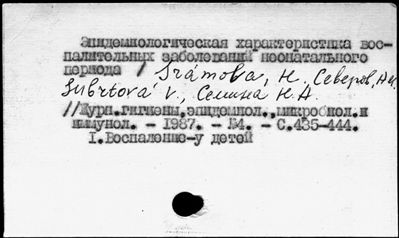 Эпидемиологическая характеристика вос-
палительных заболеваний неонатального
периода / Srámova, H. Северов, А.И.
Šubrtová V., Семина Н.А.
//Журн.гигиены,эпидемиол.,микробиол.и
иммунол. - 1987. - №4. - С.435-444.
I.Воспаление-у детей